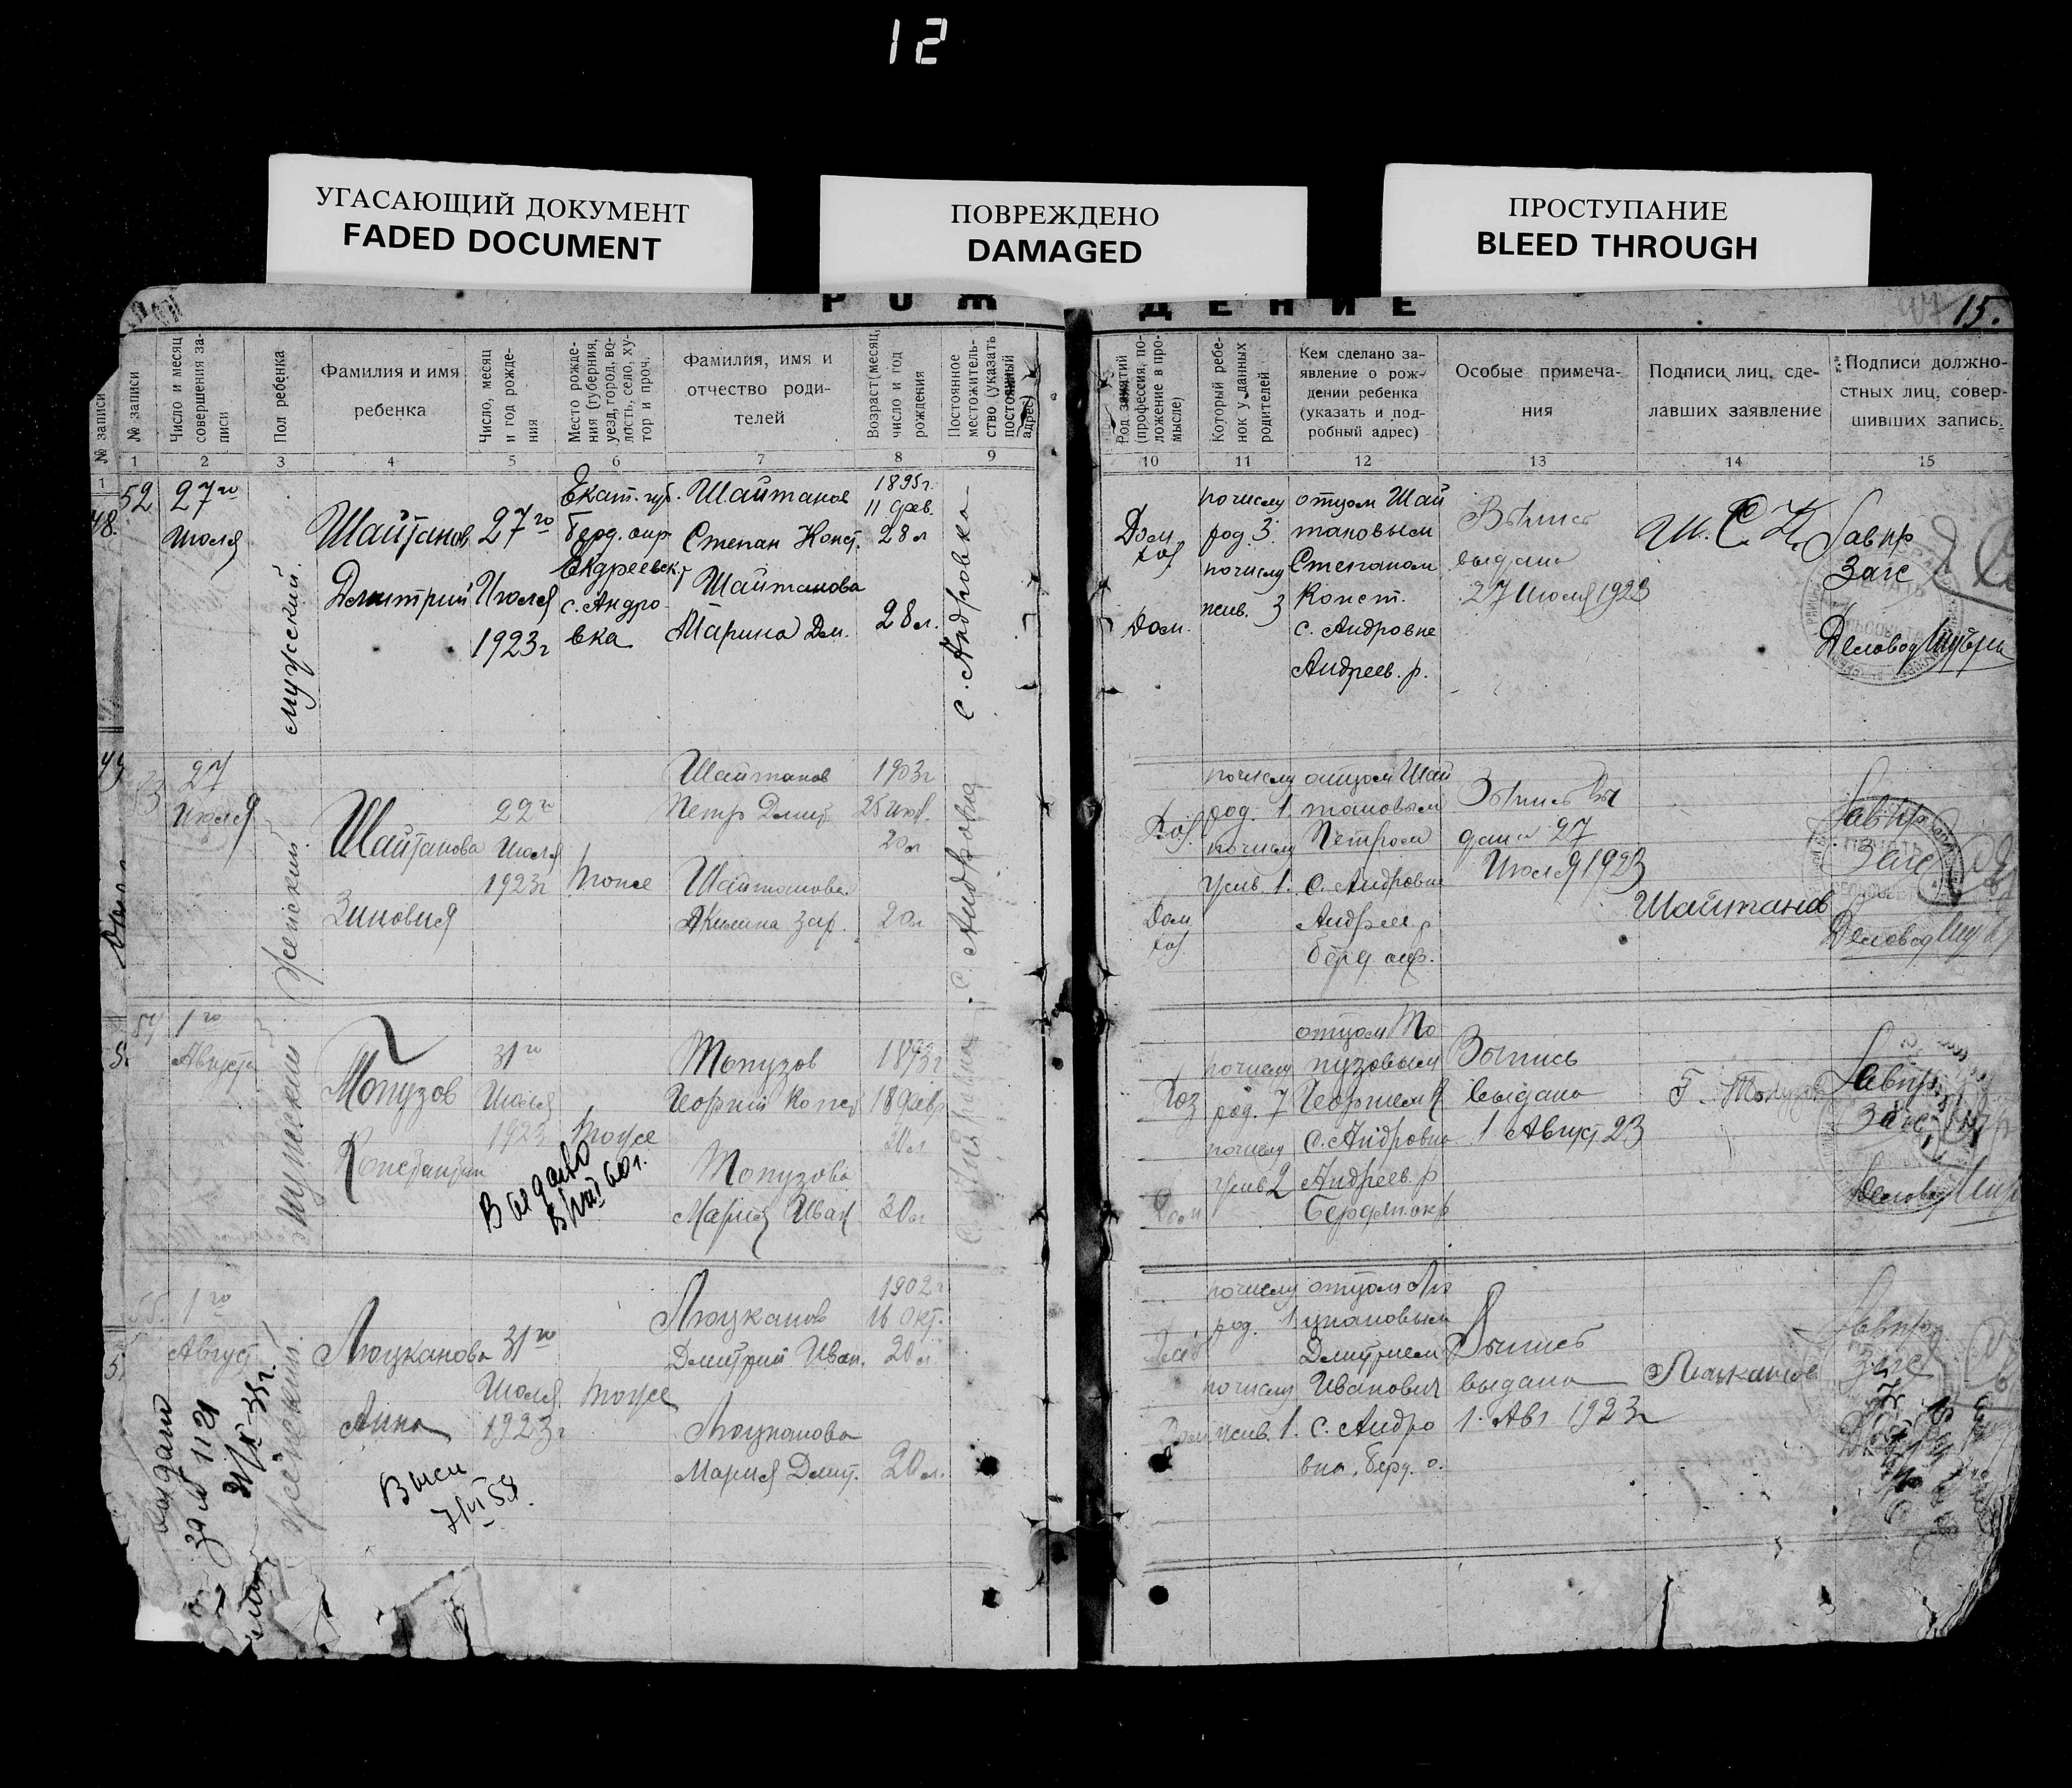 12
УГАСАЮЩИЙ ДОКУМЕНТ
FADED DOCUMENT
ПОВРЕЖДЕНО
DAMAGED
ПРОСТУПАНИЕ
BLEED THROUGH
РОЖДЕНИЕ
15.
№ записи
№ записи
Число и месяц
совершения за-
писи
Пол ребенка
Фамилия и имя
ребенка
Число, месяц
и год рожде-
ния
Место рожде-
ния (губерния,
уезд, город, во-
лость, село, ху-
тор и проч.
Фамилия, имя и
отчество роди-
телей
Возраст (месяц,
число и год
рождения
Постоянное
местожитель-
ство (указать
постоянный
адрес)
Род занятий
(профессия, по-
ложение в про-
мысле)
Который ребе-
нок у данных
родителей
Кем сделано за-
явление о рож-
дении ребенка
(указать и под-
робный адрес)
Особые примеча-
ния
Подписи лиц, сде-
лавших заявление
Подписи должно-
стных лиц, совер-
шивших запись.
1 2 3 4 5 6 7 8 9 10 11 12 13 14 15
1
48.
52
27го
Июля
мужской.
Шайтанов
Дмитрий
27го
Июля
1923г
Екат. губ.
Берд. окр.
с. Андро
вка
Шайтанов
Степан Конст.
Шайтанова
Марина Дм.
1895г.
11 фев.
28 л
28 л.
с. Андровка
Дом.
Дом.
по числу
род. 3.
по числу
жив. 3
отцом Шай
тановым
Степаном
Конст.
с. Андровке
Андреев. р.
Выпись
выдана
27 Июля 1923
Ш. С. К.
Завпр
Загс
Деловод
49
27
Июля
женский
Шайтанова
Зиновия
22го
Июля
1923г
тоже
Шайтанов
Петр Дмит
Шайтанова
1903г
20 л
20 л
с. Андровка
Дом
хоз
по числу
род. 1.
по числу
жив. 1.
отцом Шай
тановым
Петром
с. Андровке
Андреев р
Берд. окр.
Выпись вы
дана 27
Июля 1923
Шайтанов
Завпр
Загс
Деловод
54
1го
Августа
мужской
Топузов
Константин
31го
Июля
1923
тоже
Выдано
Топузов
Георгий Конст
Топузова
Мария Иван
18 февр
30 л
30 л
с. Андровка
Хоз
Дом
по числу
род. 7
по числу
жив 2
отцом То
пузовым
Георгием К
с. Андровке
Андреев. р
Бердян. окр
Выпись
выдана
1 Август 23
Г. Топузов
Завпр
Загс
Деловод
55.
1го
Август
женский.
Люцканова
Анна
31го
Июля
1923г
тоже
Люцканов
Дмитрий Иван.
Люцканова
Мария Дмит.
1902г
16 Окт.
20 л
20 л.
по числу
род. 1
по числу
жив. 1.
отцом Лю
цкановым
Дмитрием
Иванович
с. Андро
вка, Берд. о.
Выпись
выдана
1. Авг 1923г
Люцканов
Завпр
Загс
выдано